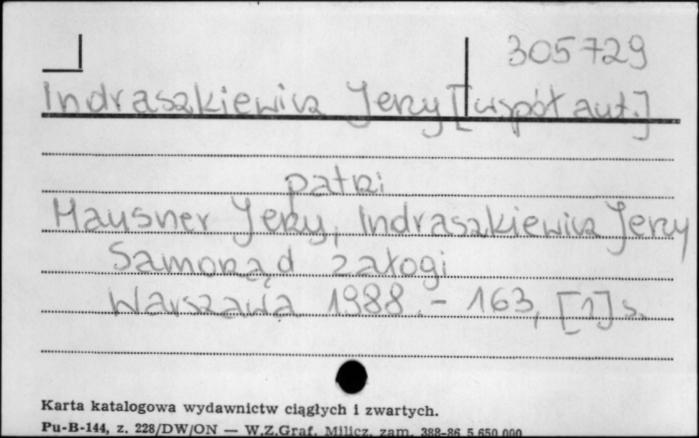 305729
Indraszkiewicz Jerzy [współaut.]
patrz:
Hausner Jerzy, Indraszkiewicz Jerzy
Samorząd załogi
Warszawa 1988. - 163, [1] s.
Karta katalogowa wydawnictw ciągłych i zwartych.
Pu-B-144, z. 228/DW/ON — W.Z.Graf. Milicz, zam. 388-86 5.650.000